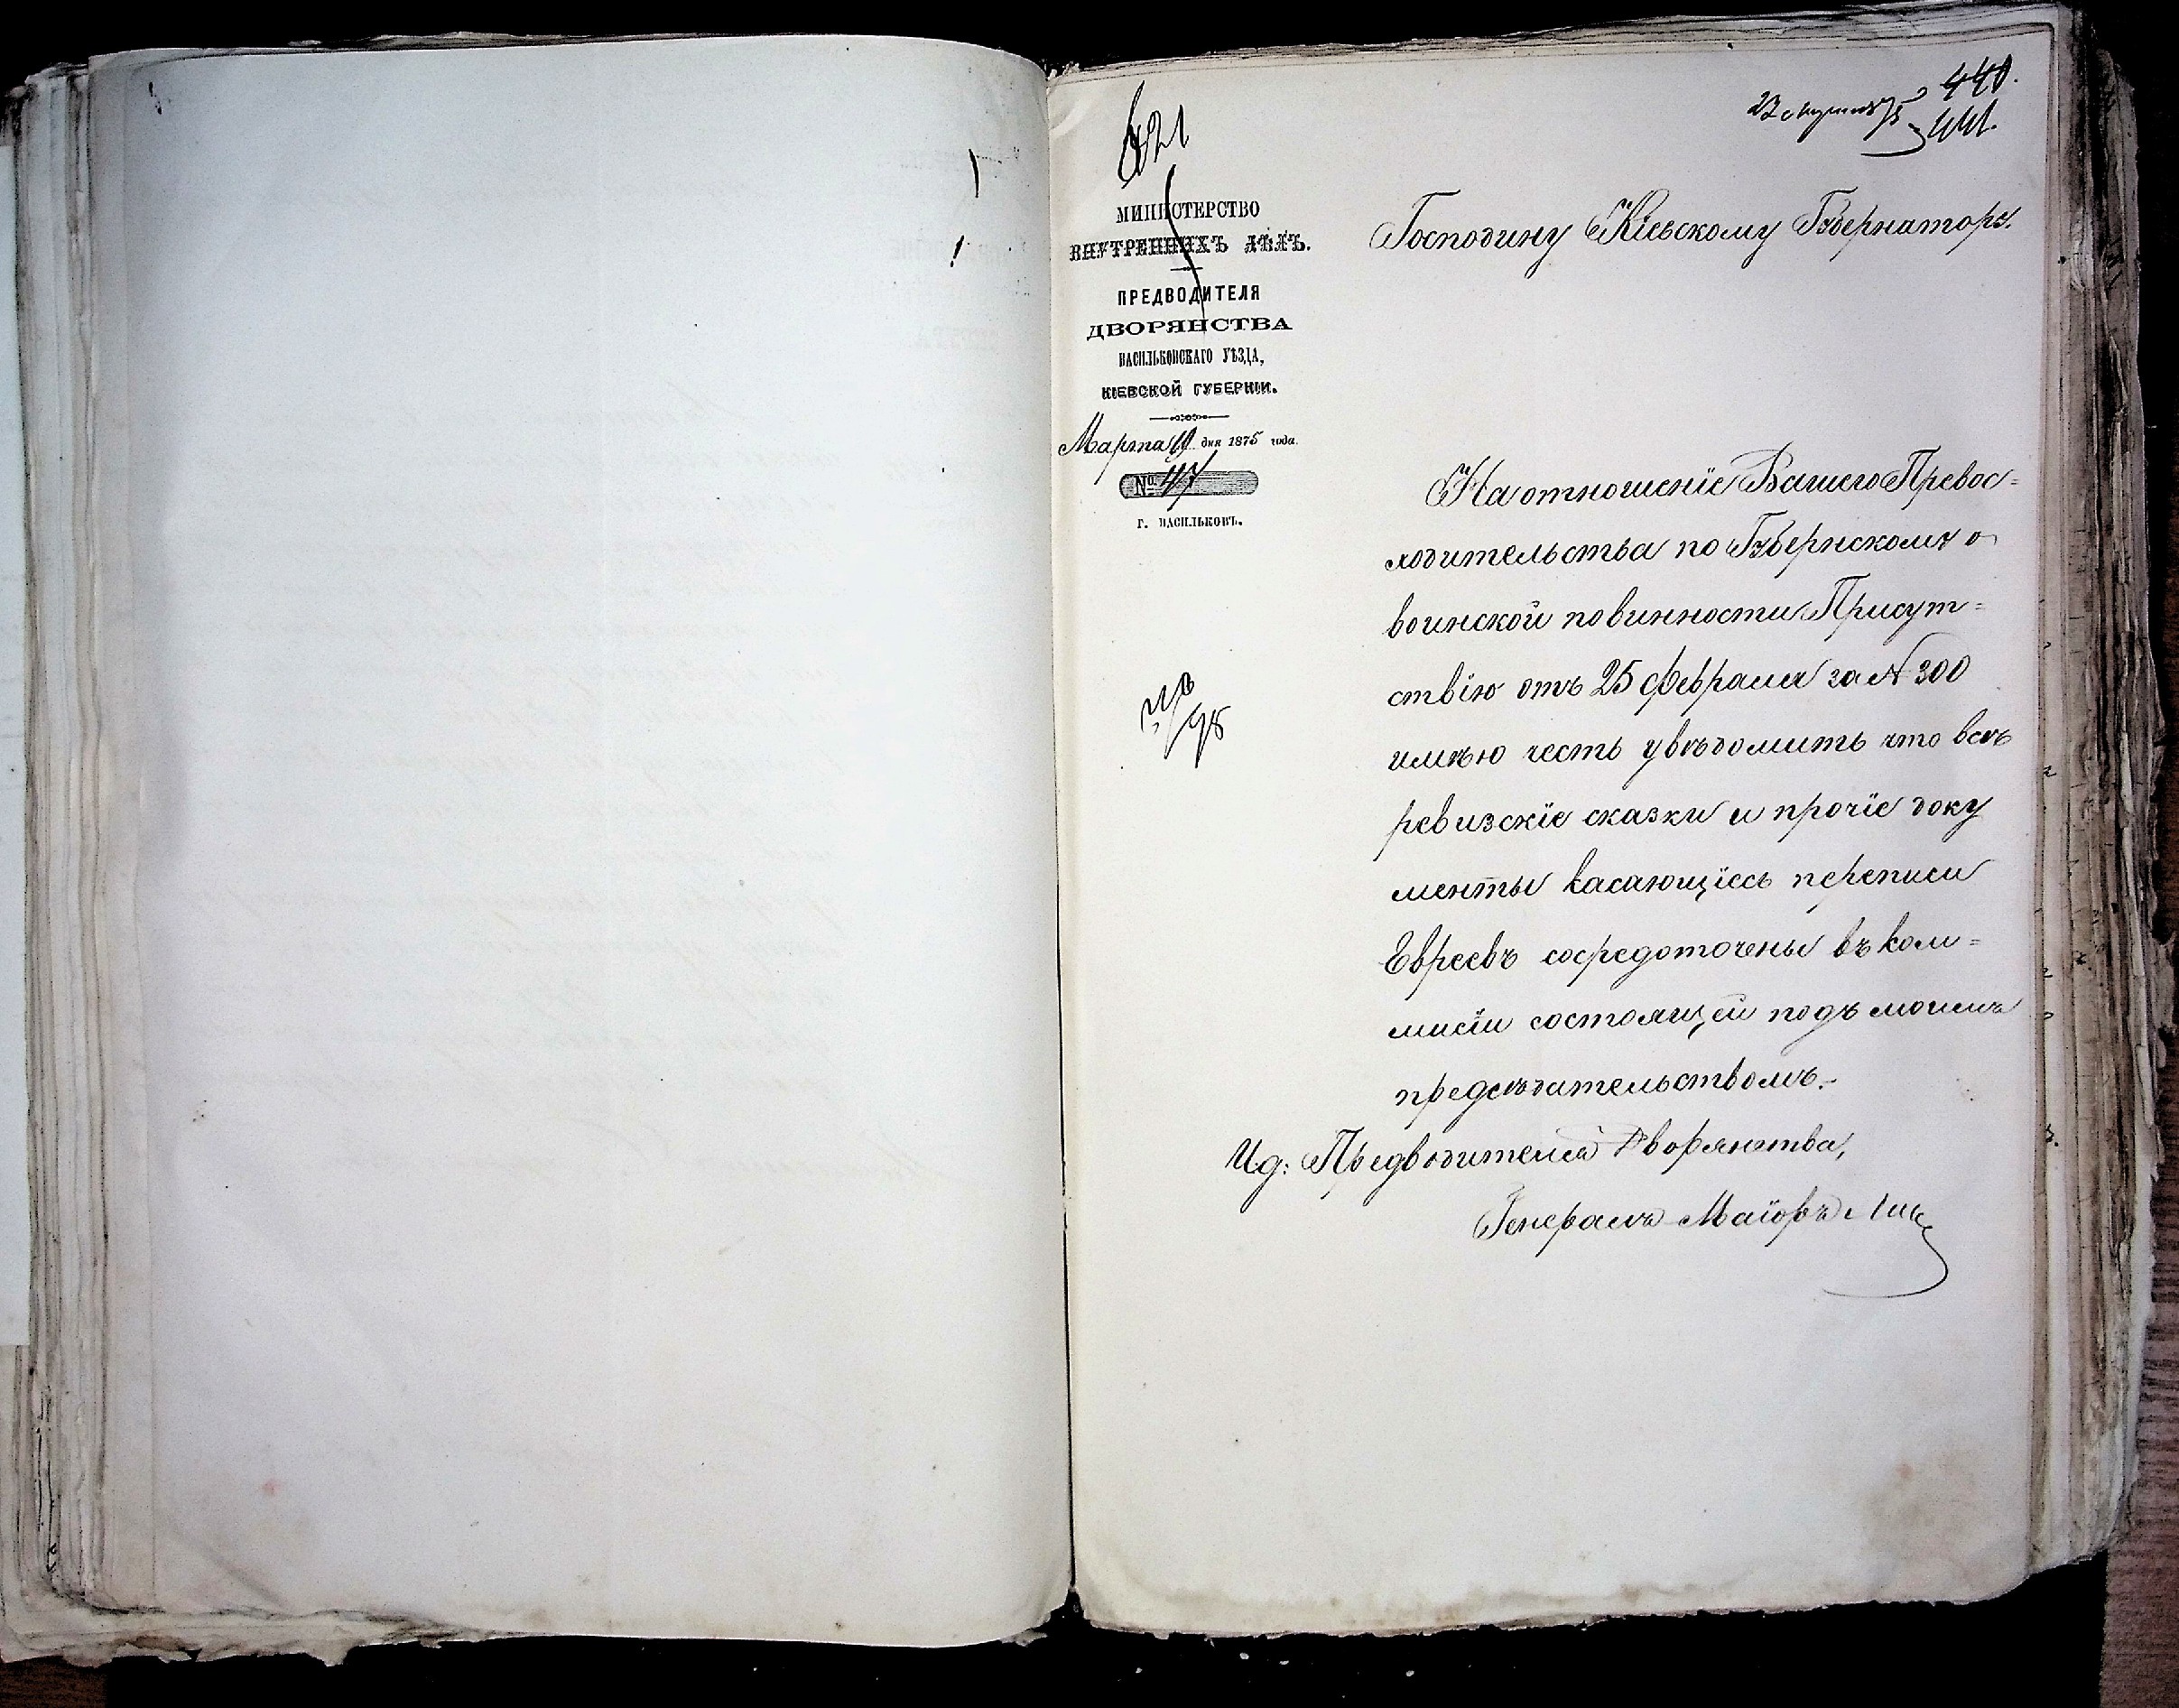 440.
441.
МИНИСТЕРСТВО
ВНУТРЕННИХЪ ДѢЛЪ.
ПРЕДВОДИТЕЛЯ
ДВОРЯНСТВА
ВАСИЛЬКОВСКАГО УѢЗДА,
КІЕВСКОЙ ГУБЕРНІИ.
Марта 19 дня 1875 года.
№ 47
Г. ВАСИЛЬКОВЪ.
Господину Кіевскому Губернатору.
На отношеніе Вашего Превос=
ходительства по Губернскому о
воинской повинности Присут=
ствію отъ 25 февраля за № 300
имѣю честь увѣдомить что всѣ
ревизскіе сказки и прочіе доку
менты касающіесь переписи
Евреевъ сосредоточены въ ком=
мисіи состоящей подъ моимъ
предсѣдательствомъ.
И д: Предводителя Дворянства,
Генералъ Маіоръ